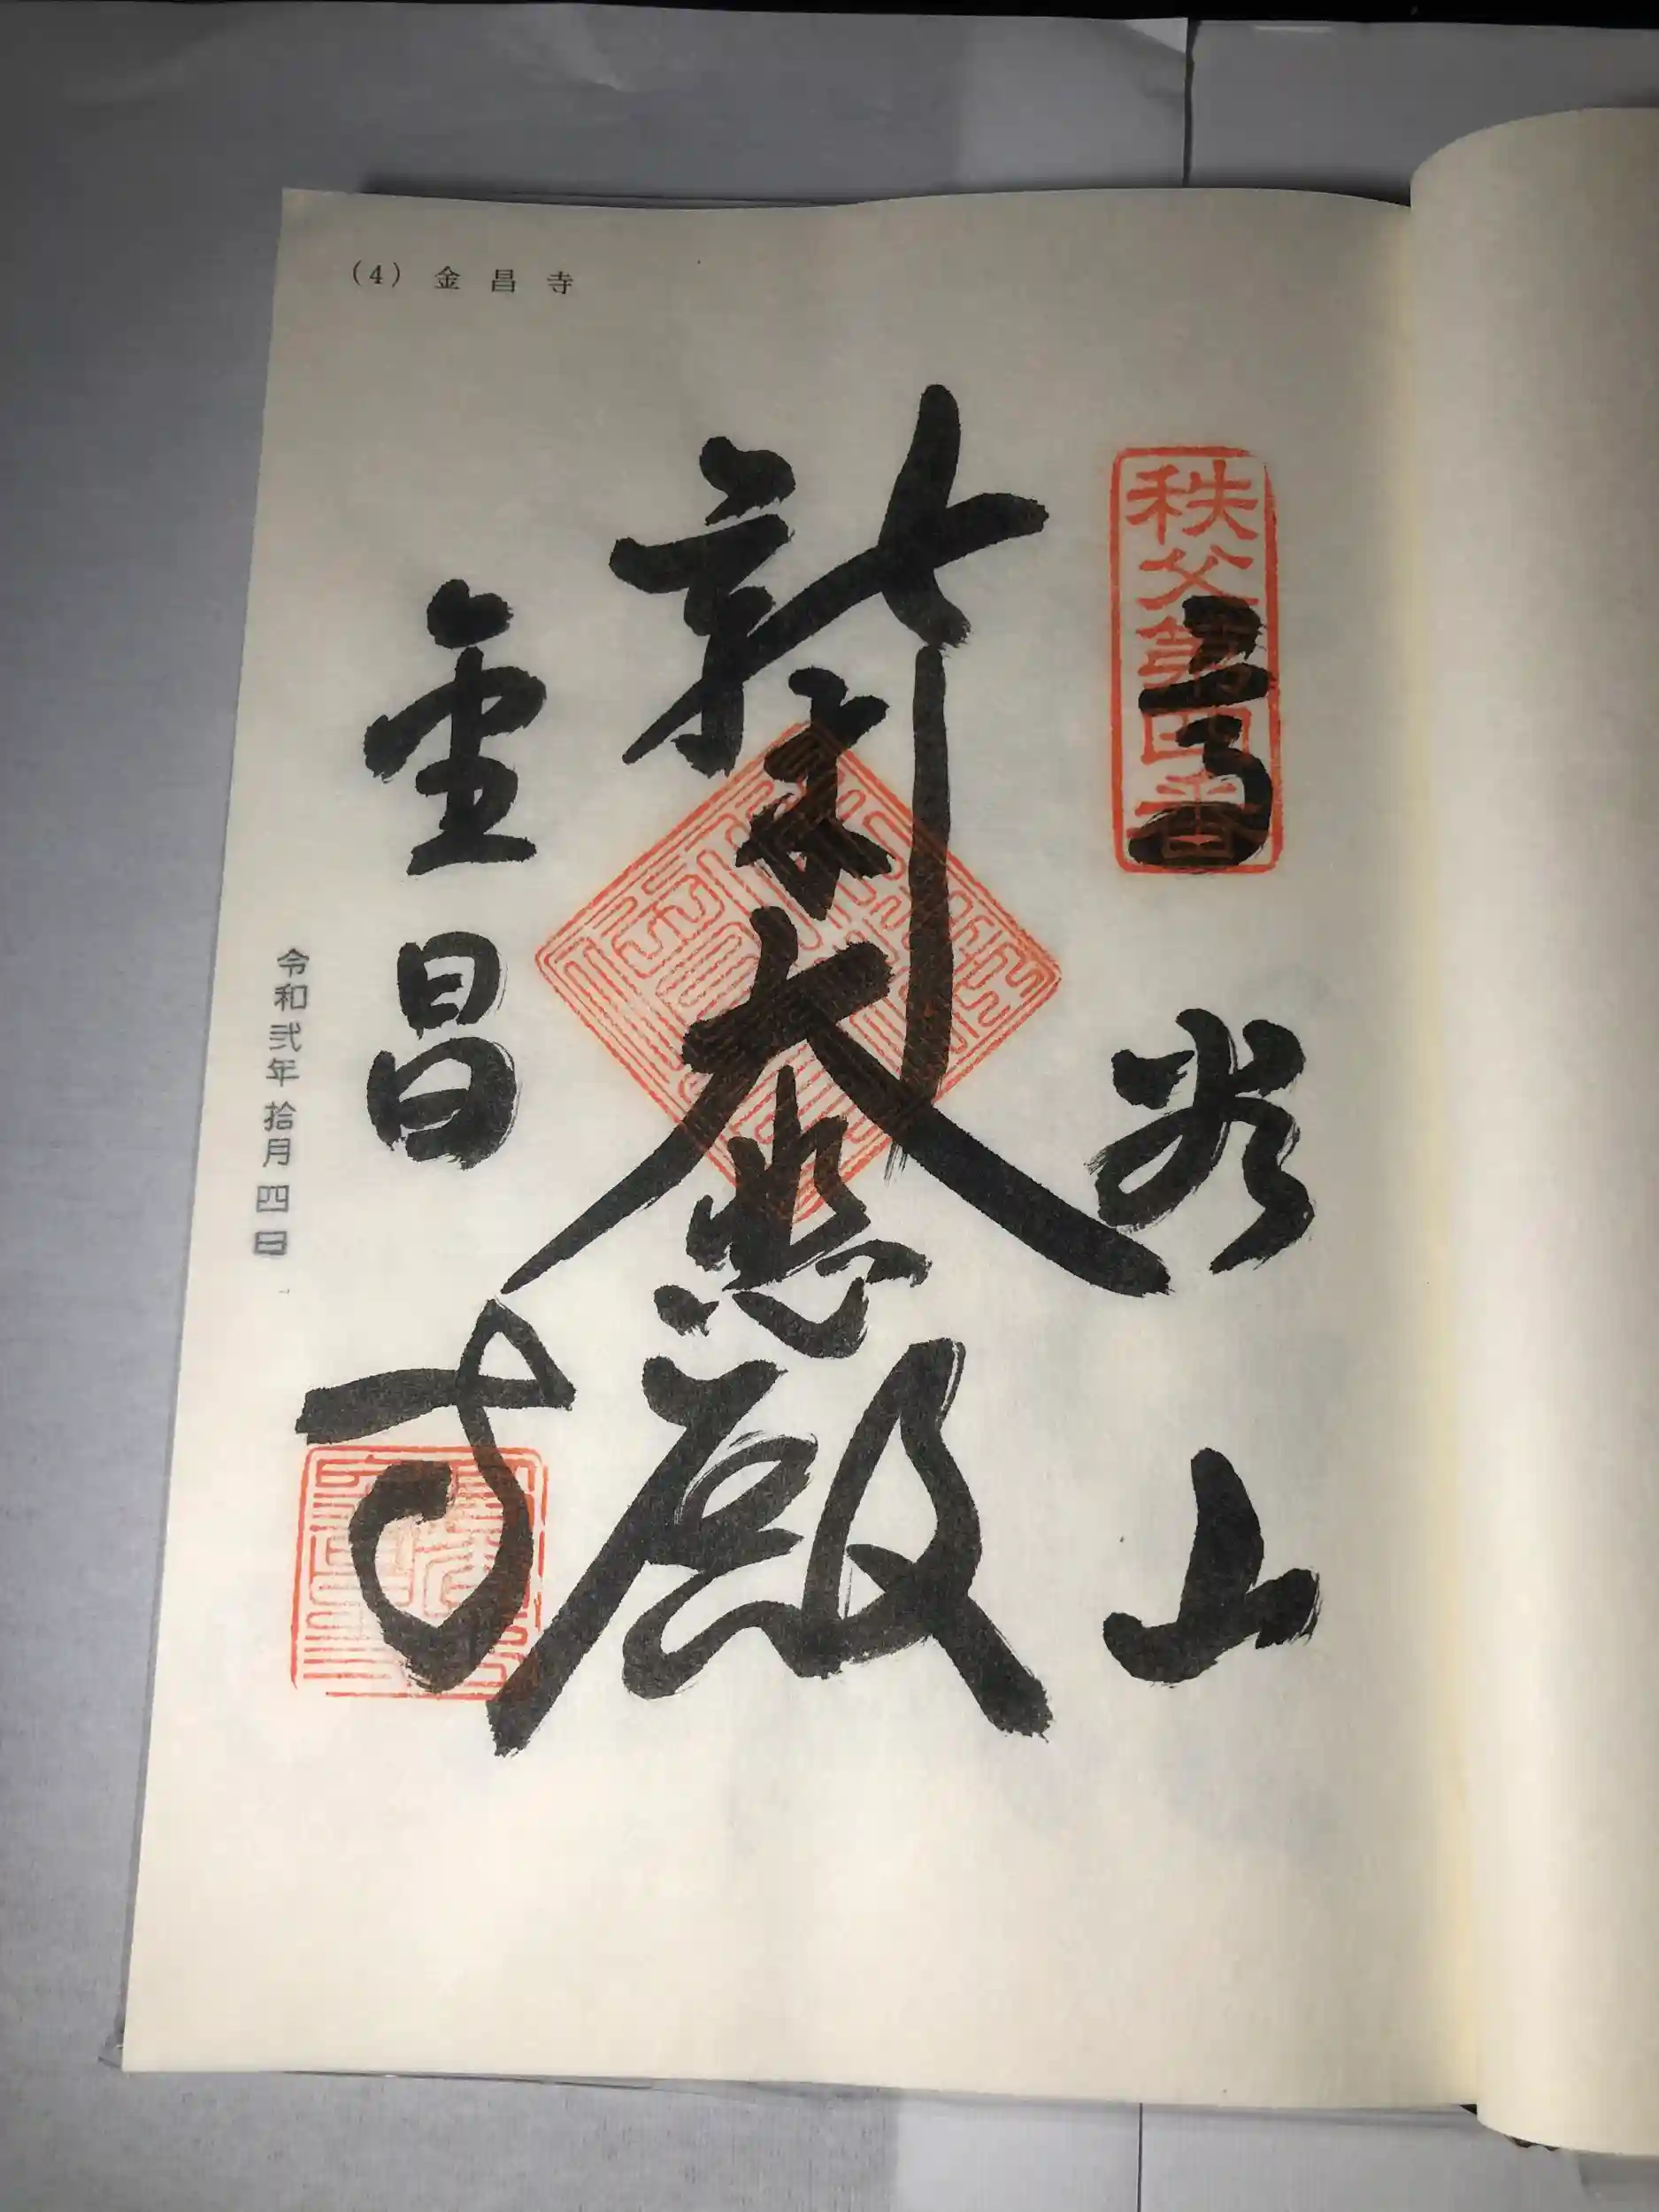 (4) 金昌寺
秩父第四番
高谷山
新木大悲殿
金昌寺
令和弐年拾月四日